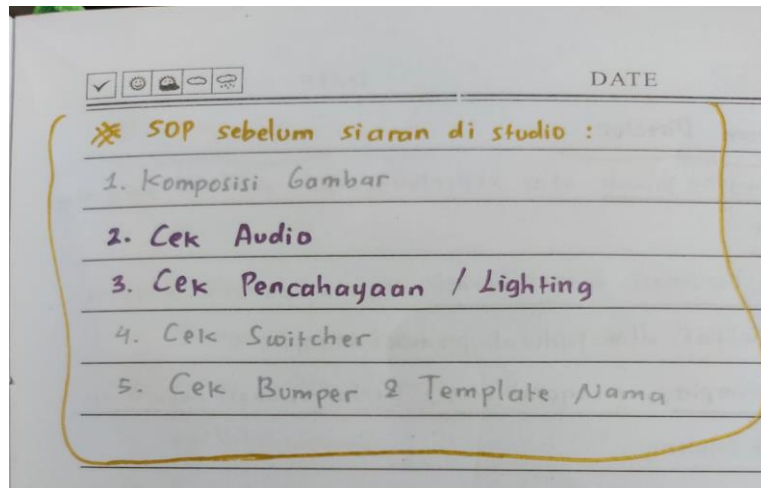 DATE
※ SOP sebelum siaran di studio :
1. Komposisi Gambar
2. Cek Audio
3. Cek Pencahayaan / Lighting
4. Cek Switcher
5. Cek Bumper & Template Nama